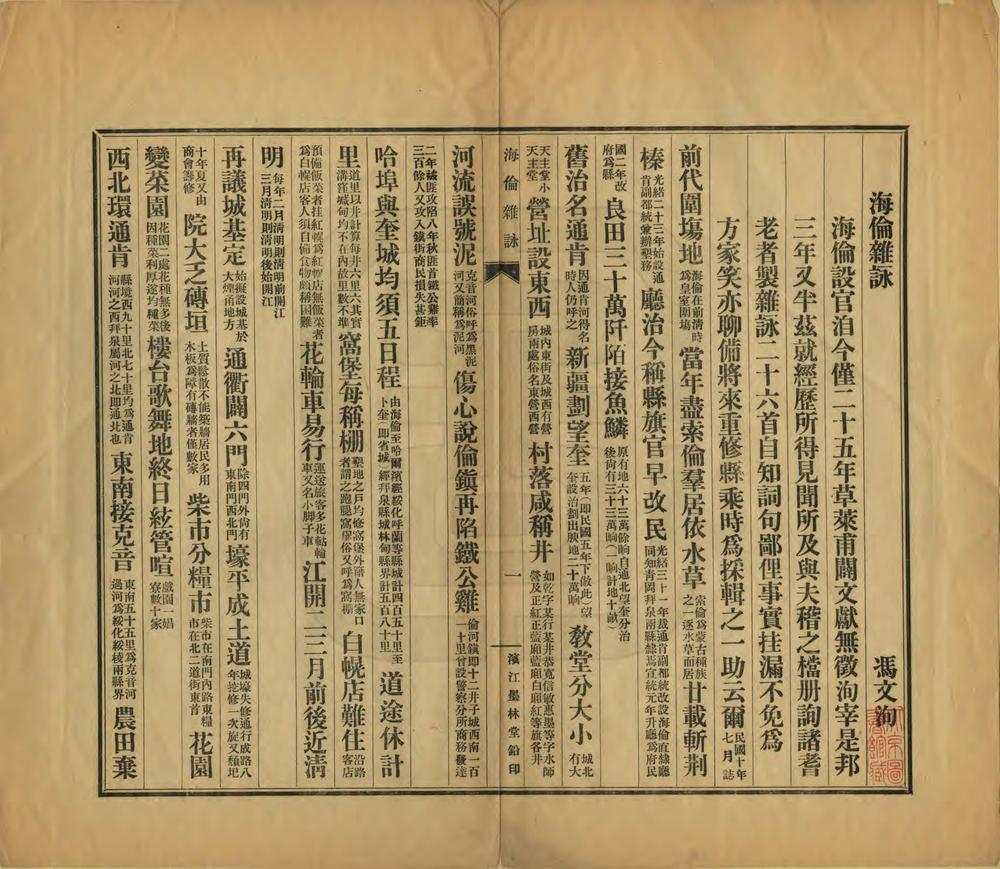 海倫雜詠
馮文洵
海倫設官洎今僅二十五年草萊甫闢文獻無徵洵宰是邦
三年又半茲就經歷所得見聞所及與夫稽之檔册詢諸耆
老者製雜詠二十六首自知詞句鄙俚事實挂漏不免爲
方家笑亦聊備將來重修縣乘時爲採輯之一助云爾民國十年七月誌
前代圍塲地海倫在前淸時爲皇室圍塲當年盡索倫羣居依水草索倫爲蒙古種族之一逐水草而居廿載斬荆
榛光緒二十三年始設通肯副都統兼辦墾務廳治今稱縣旗官早改民光緒三十一年裁通肯副都統改設海倫直隸廳同知青岡拜泉兩縣隸焉宣統元年升廳爲府民
國二年改府爲縣良田三十萬阡陌接魚鱗原有地六十三萬餘晌自通北望奎分治後尙有三十三萬晌(一晌計地十畝)
舊治名通肯因通肯河得名時人仍呼之新疆劃望奎五年(即民國五年下倣此)望奎設治劃出腴地二十萬晌敎堂分大小城北有大
天主堂小天主堂營址設東西城內東街及城西有營房兩處俗名東營西營村落咸稱井如乾字某行某井恭寬信敏惠墨等字水師營及正紅正藍廂藍廂白廂紅等旗各井
海倫雜詠
一
濱江墨林堂鉛印
河流誤號泥克音河俗呼爲黑泥河又簡稱爲泥河傷心說倫鎭再陷鐵公雞倫河鎭即十二井子城西南一百一十里曾設警察分所商務發達
二年被匪攻陷八年秋匪首鐵公雞率三百餘人又攻入鎭街商民損失甚鉅
哈埠與奎城均須五日程由海倫至哈爾濱經綏化呼蘭等縣城計四百五十里至卜奎(即省城)經拜泉縣城林甸縣界計五百八十里道途休計
里道里以井計算每井六里六其實溝窪碱甸均不在內故里數不準窩堡每稱棚墾地之戶均修窩堡外籍人無家口者謂之跑腿窩堡俗又呼爲窩棚白幌店難住沿路客店
預備飯菜者挂紅幌爲紅幌店無飯菜者爲白幌店客人須自備食物頗稱困難花輪車易行運送旅客多花軲輪車又名小脚子車江開二三月前後近淸
明每年二月淸明則淸明前開江三月淸明則淸明後始開江
再議城基定始擬設城基於大煙甬地方通衢闢六門除四門外尙有東南門西北門壕平成土道城壕失修通行成路八年挖修一次旋又頹圮
十年夏又由商會籌修院大乏磚垣土質鬆散不能築牆居民多用木板爲障有磚牆者僅數家柴市分糧市柴市在南門內路東糧市在北二道街東首花園
變菜園花園二處花種無多後因種菜利厚遂均種菜樓台歌舞地終日絃管喧戲園一娼寮數十家
西北環通肯縣境西九十里北七十里均爲通肯河河之西拜泉屬河之北即通北也東南接克音東南五十五里爲克音河過河爲綏化綏稜兩縣界農田棄